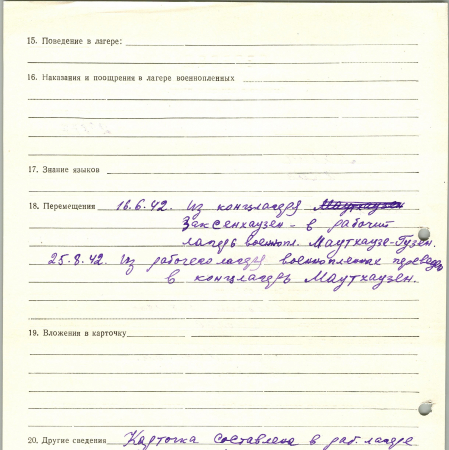 15. Поведение в лагере:
16. Наказания и поощрения в лагере военнопленных
17. Знание языков
18. Перемещения 16.6.42. Из концлагеря Маутхаузен
Заксенхаузен - в рабочий
лагерь военнопл. Маутхаузе-Гузен.
25.8.42. Из рабочего лагеря военнопленных переведен
в концлагерь Маутхаузен.
19. Вложения в карточку
20. Другие сведения Карточка составлена в раб. лагере